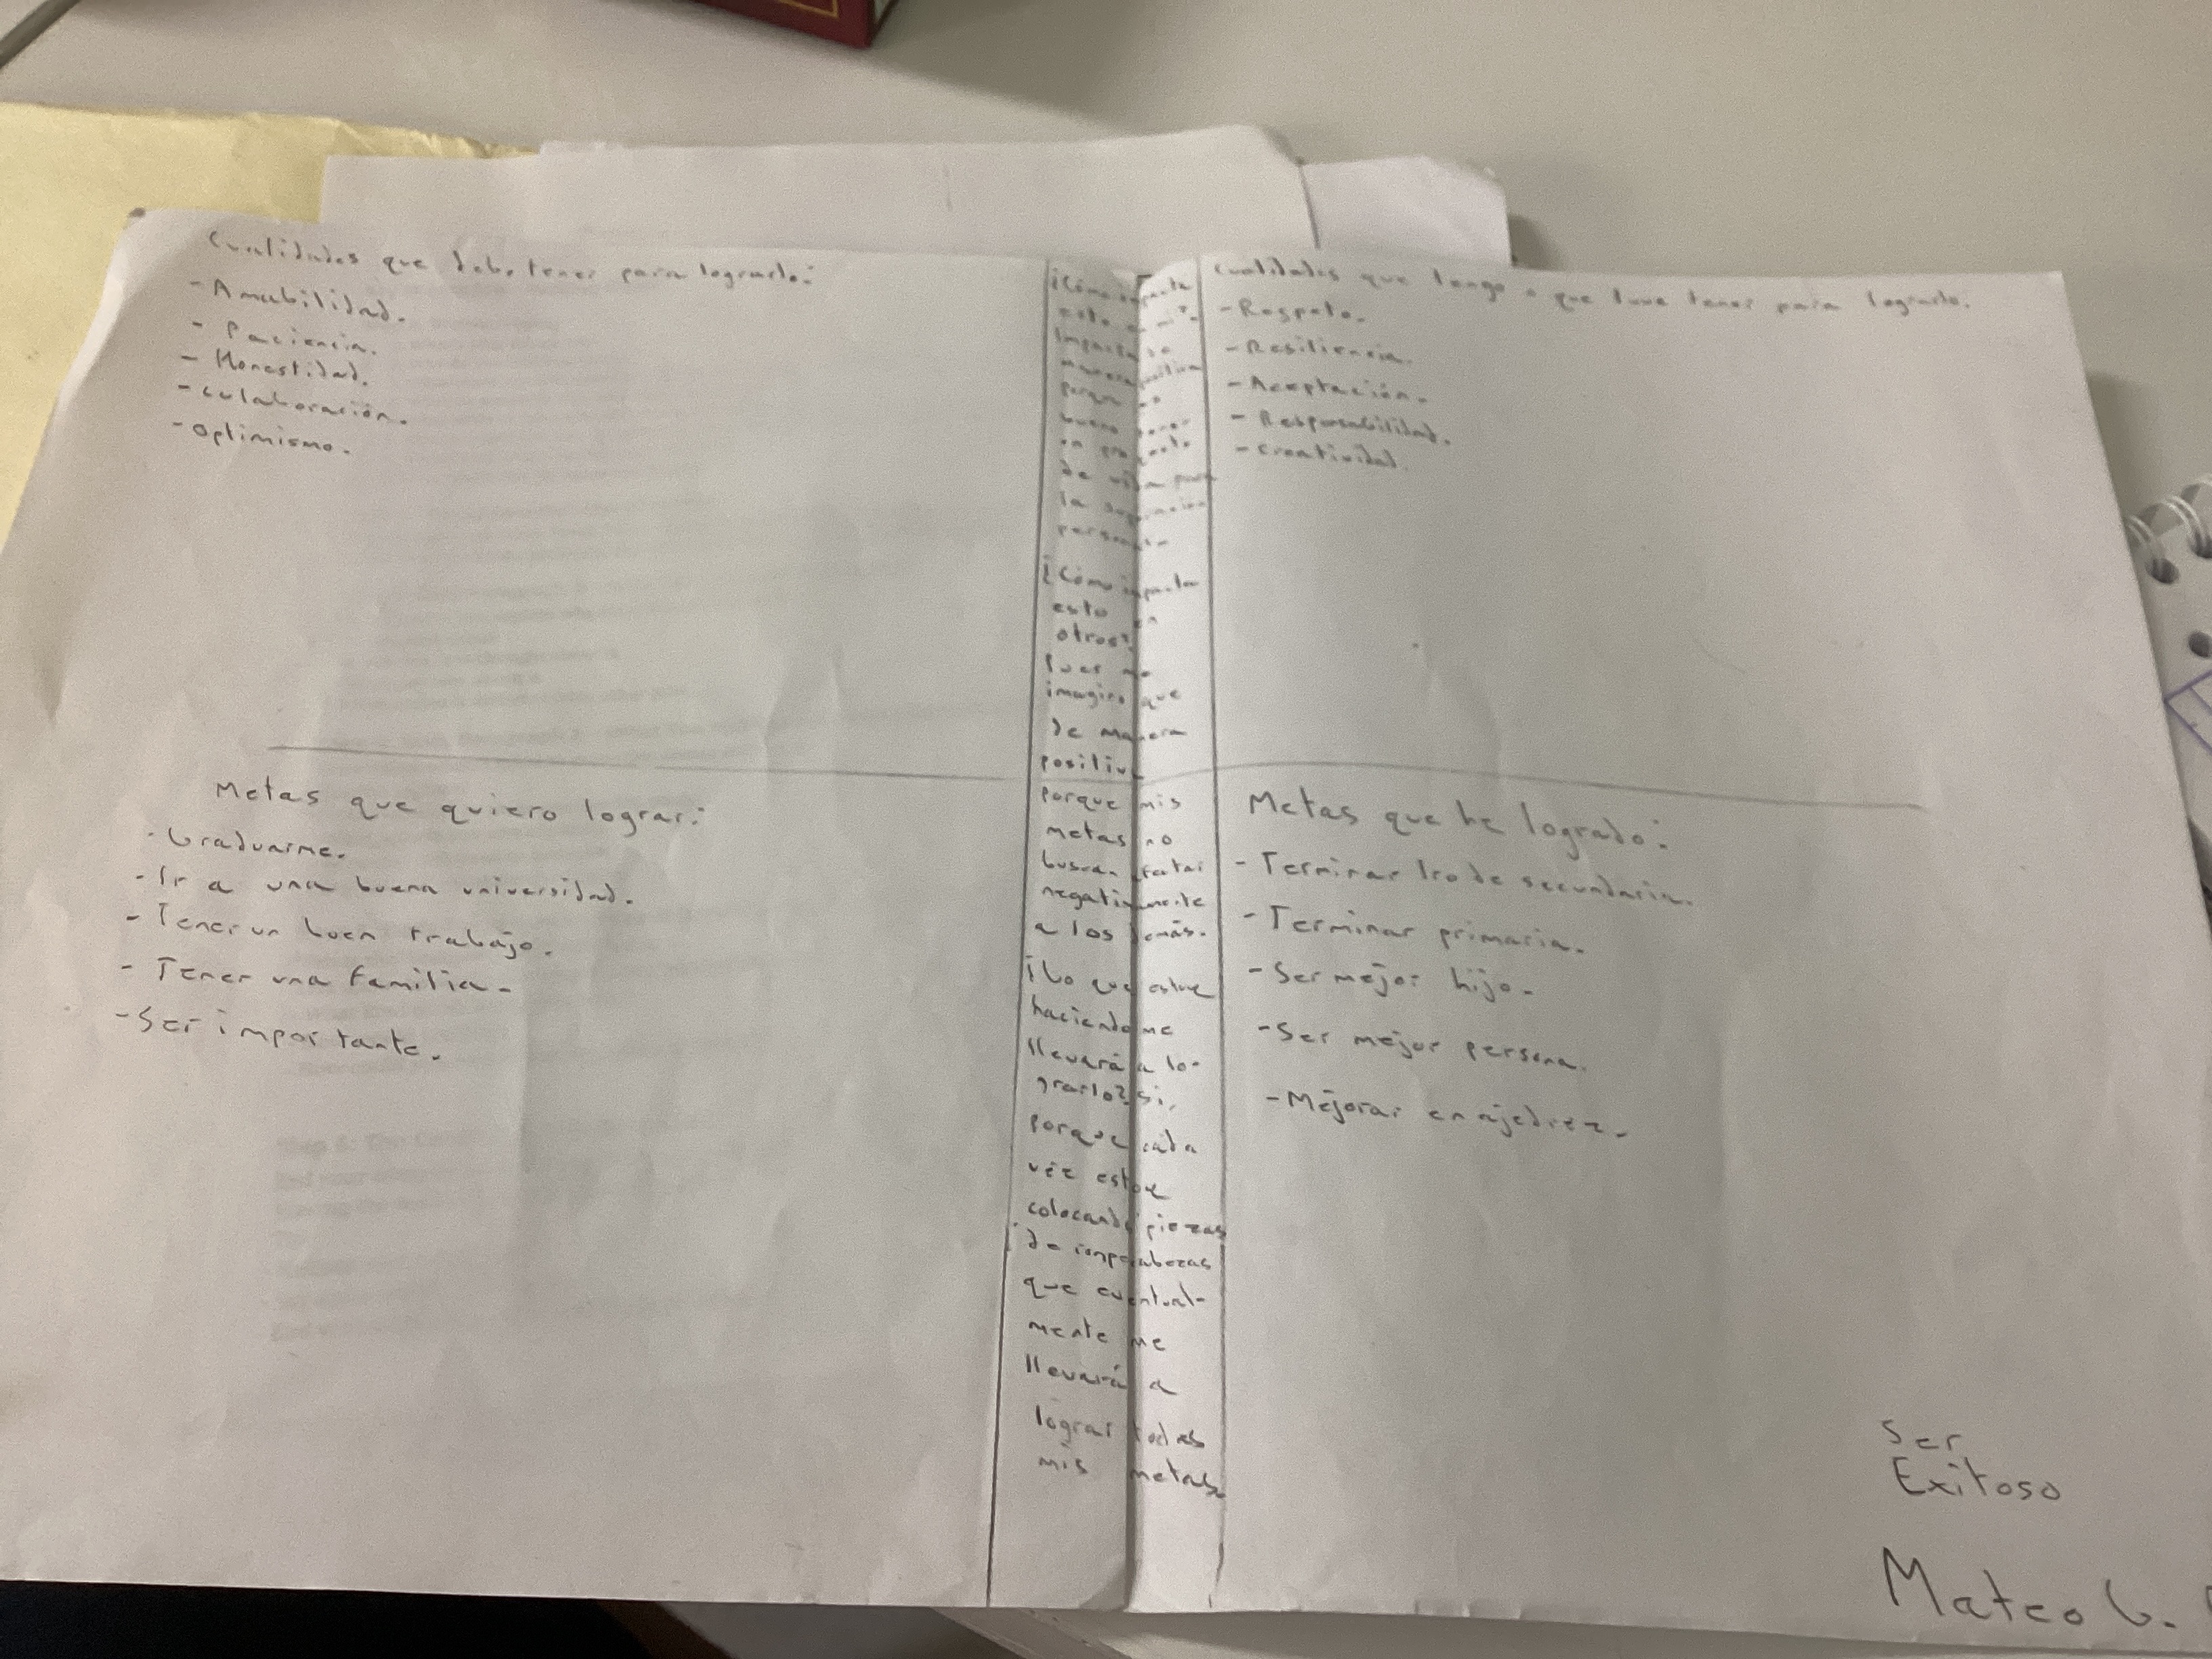 Cualidades que debo tener para lograrlo:
- Amabilidad.
- Paciencia.
- Honestidad.
- Colaboración.
- Optimismo.
Metas que quiero lograr:
- Graduarme.
- Ir a una buena universidad.
- Tener un buen trabajo.
- Tener una familia.
- Ser importante.
¿Cómo impacta
esto en mí?
Impacta de
manera positiva
porque es
bueno tener
un proyecto
de vida para
la superación
personal.
¿Cómo impacta
esto en
otros?
Pues me
imagino que
de manera
positiva
porque mis
metas no
buscan afectar
negativamente
a los demás.
¿Lo que estoy
haciendo me
llevará a lo-
grarlo? Si,
porque cada
vez estoy
colocando piezas
de rompecabezas
que eventual-
mente me
llevará a
lograr todas
mis metas.
Cualidades que tengo o que tuve tener para lograrlo.
- Respeto.
- Resiliencia.
- Aceptación.
- Responsabilidad.
- Creatividad.
Metas que he logrado:
- Terminar 1ro de secundaria.
- Terminar primaria.
- Ser mejor hijo.
- Ser mejor persona.
- Mejorar en ajedrez.
Ser
Exitoso
Mateo G.